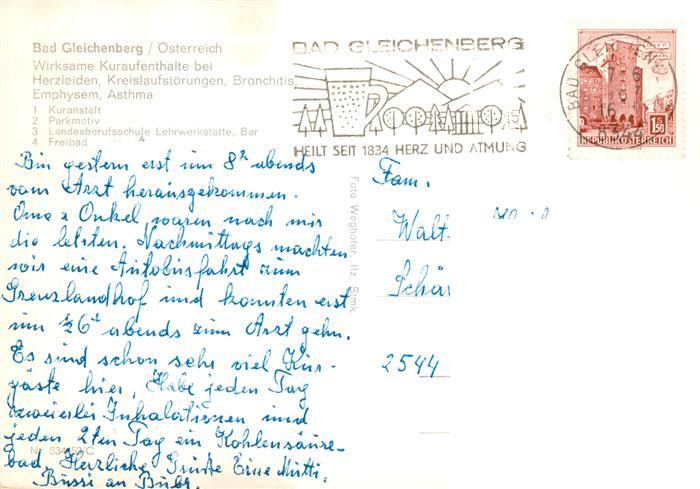 Bad Gleichenberg / Österreich
Wirksame Kuraufenthalte bei
Herzleiden, Kreislaufstörungen, Bronchitis
Emphysem, Asthma
1 Kuranstalt
2 Parkmotiv
3 Landesberufsschule Lehrwerkstätte, Bar
4 Freibad
BAD GLEICHENBERG
HEILT SEIT 1834 HERZ UND ATMUNG
8344
1.50
REPUBLIK ÖSTERREICH
Bin gestern erst um 8h abends
vom Arzt herausgekommen.
Oma u Onkel waren nach mir
die letzten. Nachmittags machten
wir eine Autobusfahrt zum
Grenzlandhof und konnten erst
um ½6h abends zum Arzt gehn.
Es sind schon sehr viel Kur-
gäste hier, Habe jeden Tag
zweierlei Inhalationen und
jeden 2ten Tag ein Kohlensäure-
bad. Herzliche Grüße Eure Mutti.
Bussi an
Foto Weghofer, Ilz, Stmk.
Fam.
Walt.
Schär
2544